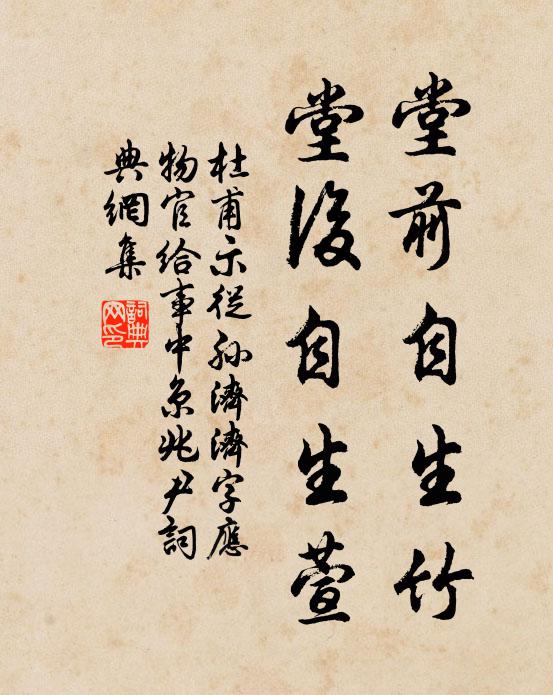 堂前自生竹
堂後自生萱
杜甫示從孫濟濟字應
物官給事中京兆尹詞
典網集
詞典網印